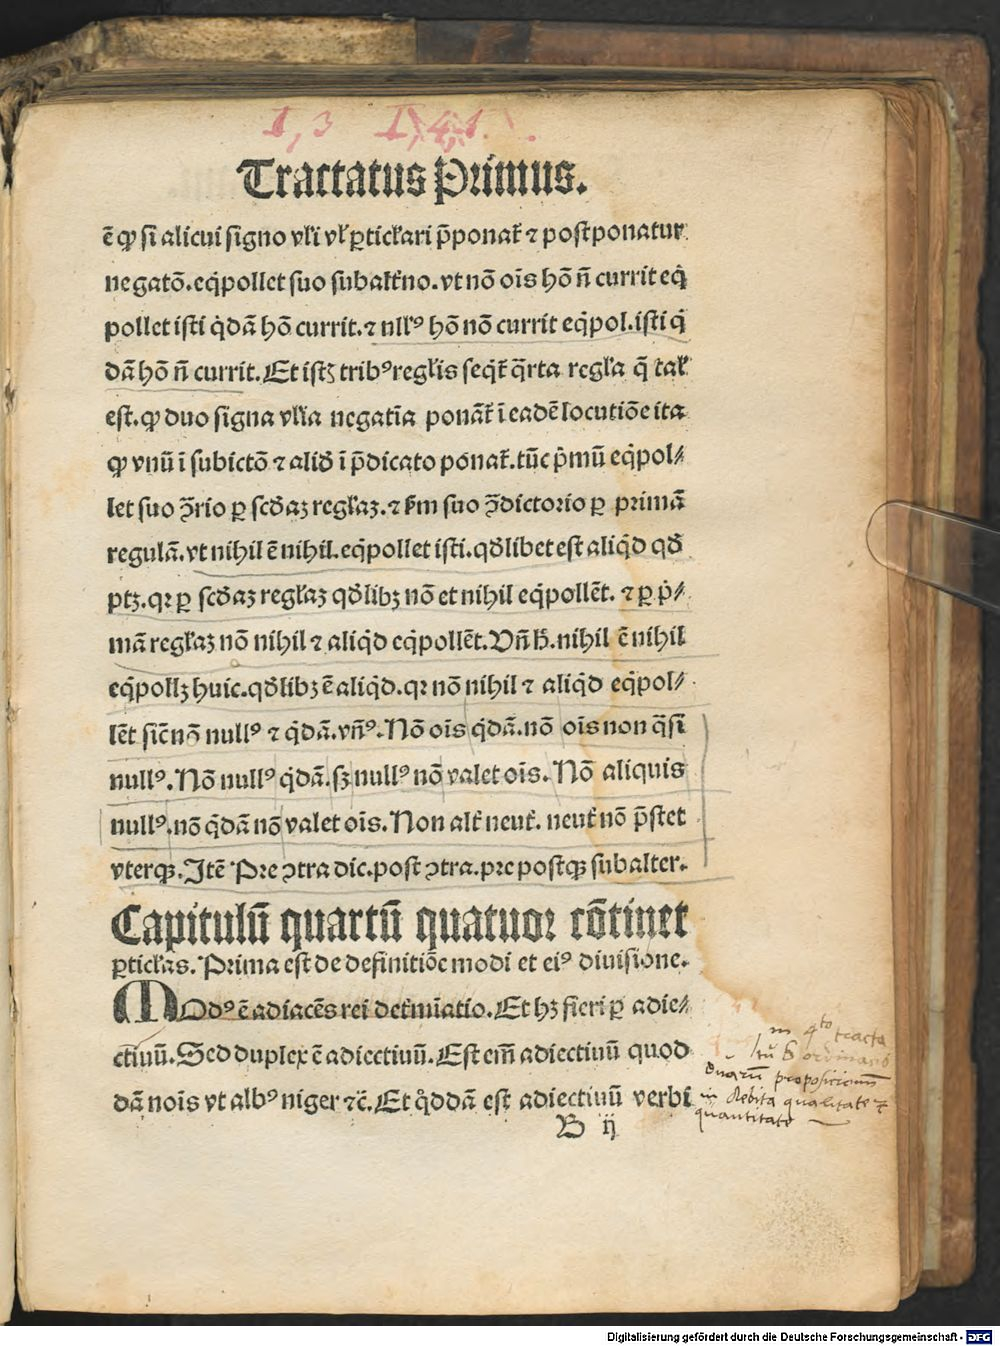 1, 3 1, 4, 1.
Tractatus Primus.
ē ꝙ si alicui signo vƚi vƚ ꝑticƚari p̄ponaẗ ⁊ postponatur
negatō. eq̇pollet suo subalẗno. vt nō oīs hō n̄ currit eq̇
pollet isti q̇dā hō currit. ⁊ nllꝰ hō nō currit eq̇pol. isti q̇
dā hō n̄ currit. Et istꝫ tribꝰ regƚis seq̇ẗ q̄rta regƚa q̄ taƚ
est. ꝙ duo signa vƚia negatīa ponāẗ ī eadē locutiōe ita
ꝙ vnū ī subictō ⁊ aliđ ī p̄dicato ponaẗ. tūc pͥmū eq̇pol⸗
let suo ↄ̄rio ꝑ scđaꝫ regƚaꝫ. ⁊ ẜm suo ↄ̄dictorio ꝑ primā
regulā. vt nihil ē nihil. eq̇pollet isti. qđlibet est aliq̇d qđ
ptꝫ. qꝛ ꝑ scđaꝫ regƚaꝫ qđlibꝫ nō et nihil eq̇pollēt. ⁊ ꝑ pͥ⸗
mā regƚaꝫ nō nihil ⁊ aliq̇d eq̇pollēt. Vn̄ ħ. nihil ē nihil
eq̇pollꝫ huic. qđlibꝫ ē aliq̇d. qꝛ nō nihil ⁊ aliq̇d eq̇pol⸗
lēt sic̄ nō nullꝰ ⁊ q̇dā. vn̄ꝰ. Nō oīs q̇dā. nō oīs non q̄si
nullꝰ. Nō nullꝰ q̇dā. sꝫ nullꝰ nō valet oīs. Nō aliquis
nullꝰ. nō q̇dā nō valet oīs. Non alẗ neuẗ. neuẗ nō p̄stet
vterqꝫ. Itē Pre ↄtra dic. post ↄtra. pre postqꝫ subalter.
Capitulū quartū quatuor cōtinet
ꝑticƚas. Prima est de definitiōe modi et eiꝰ diuisione.
MOdꝰ ē adiacēs rei deẗmīatio. Et hꝫ fieri ꝑ adie⸗
ctiuū. Sed duplex ē adiectiuū. Est em̄ adiectiuū quod
dā nois vt albꝰ niger ⁊c̄. Et q̇ddā est adiectiuū verbi
B ij
in 4to tracta
duarū propositionū
in debita qualitate ⁊
quantitate
Digitalisierung gefördert durch die Deutsche Forschungsgemeinschaft - DFG